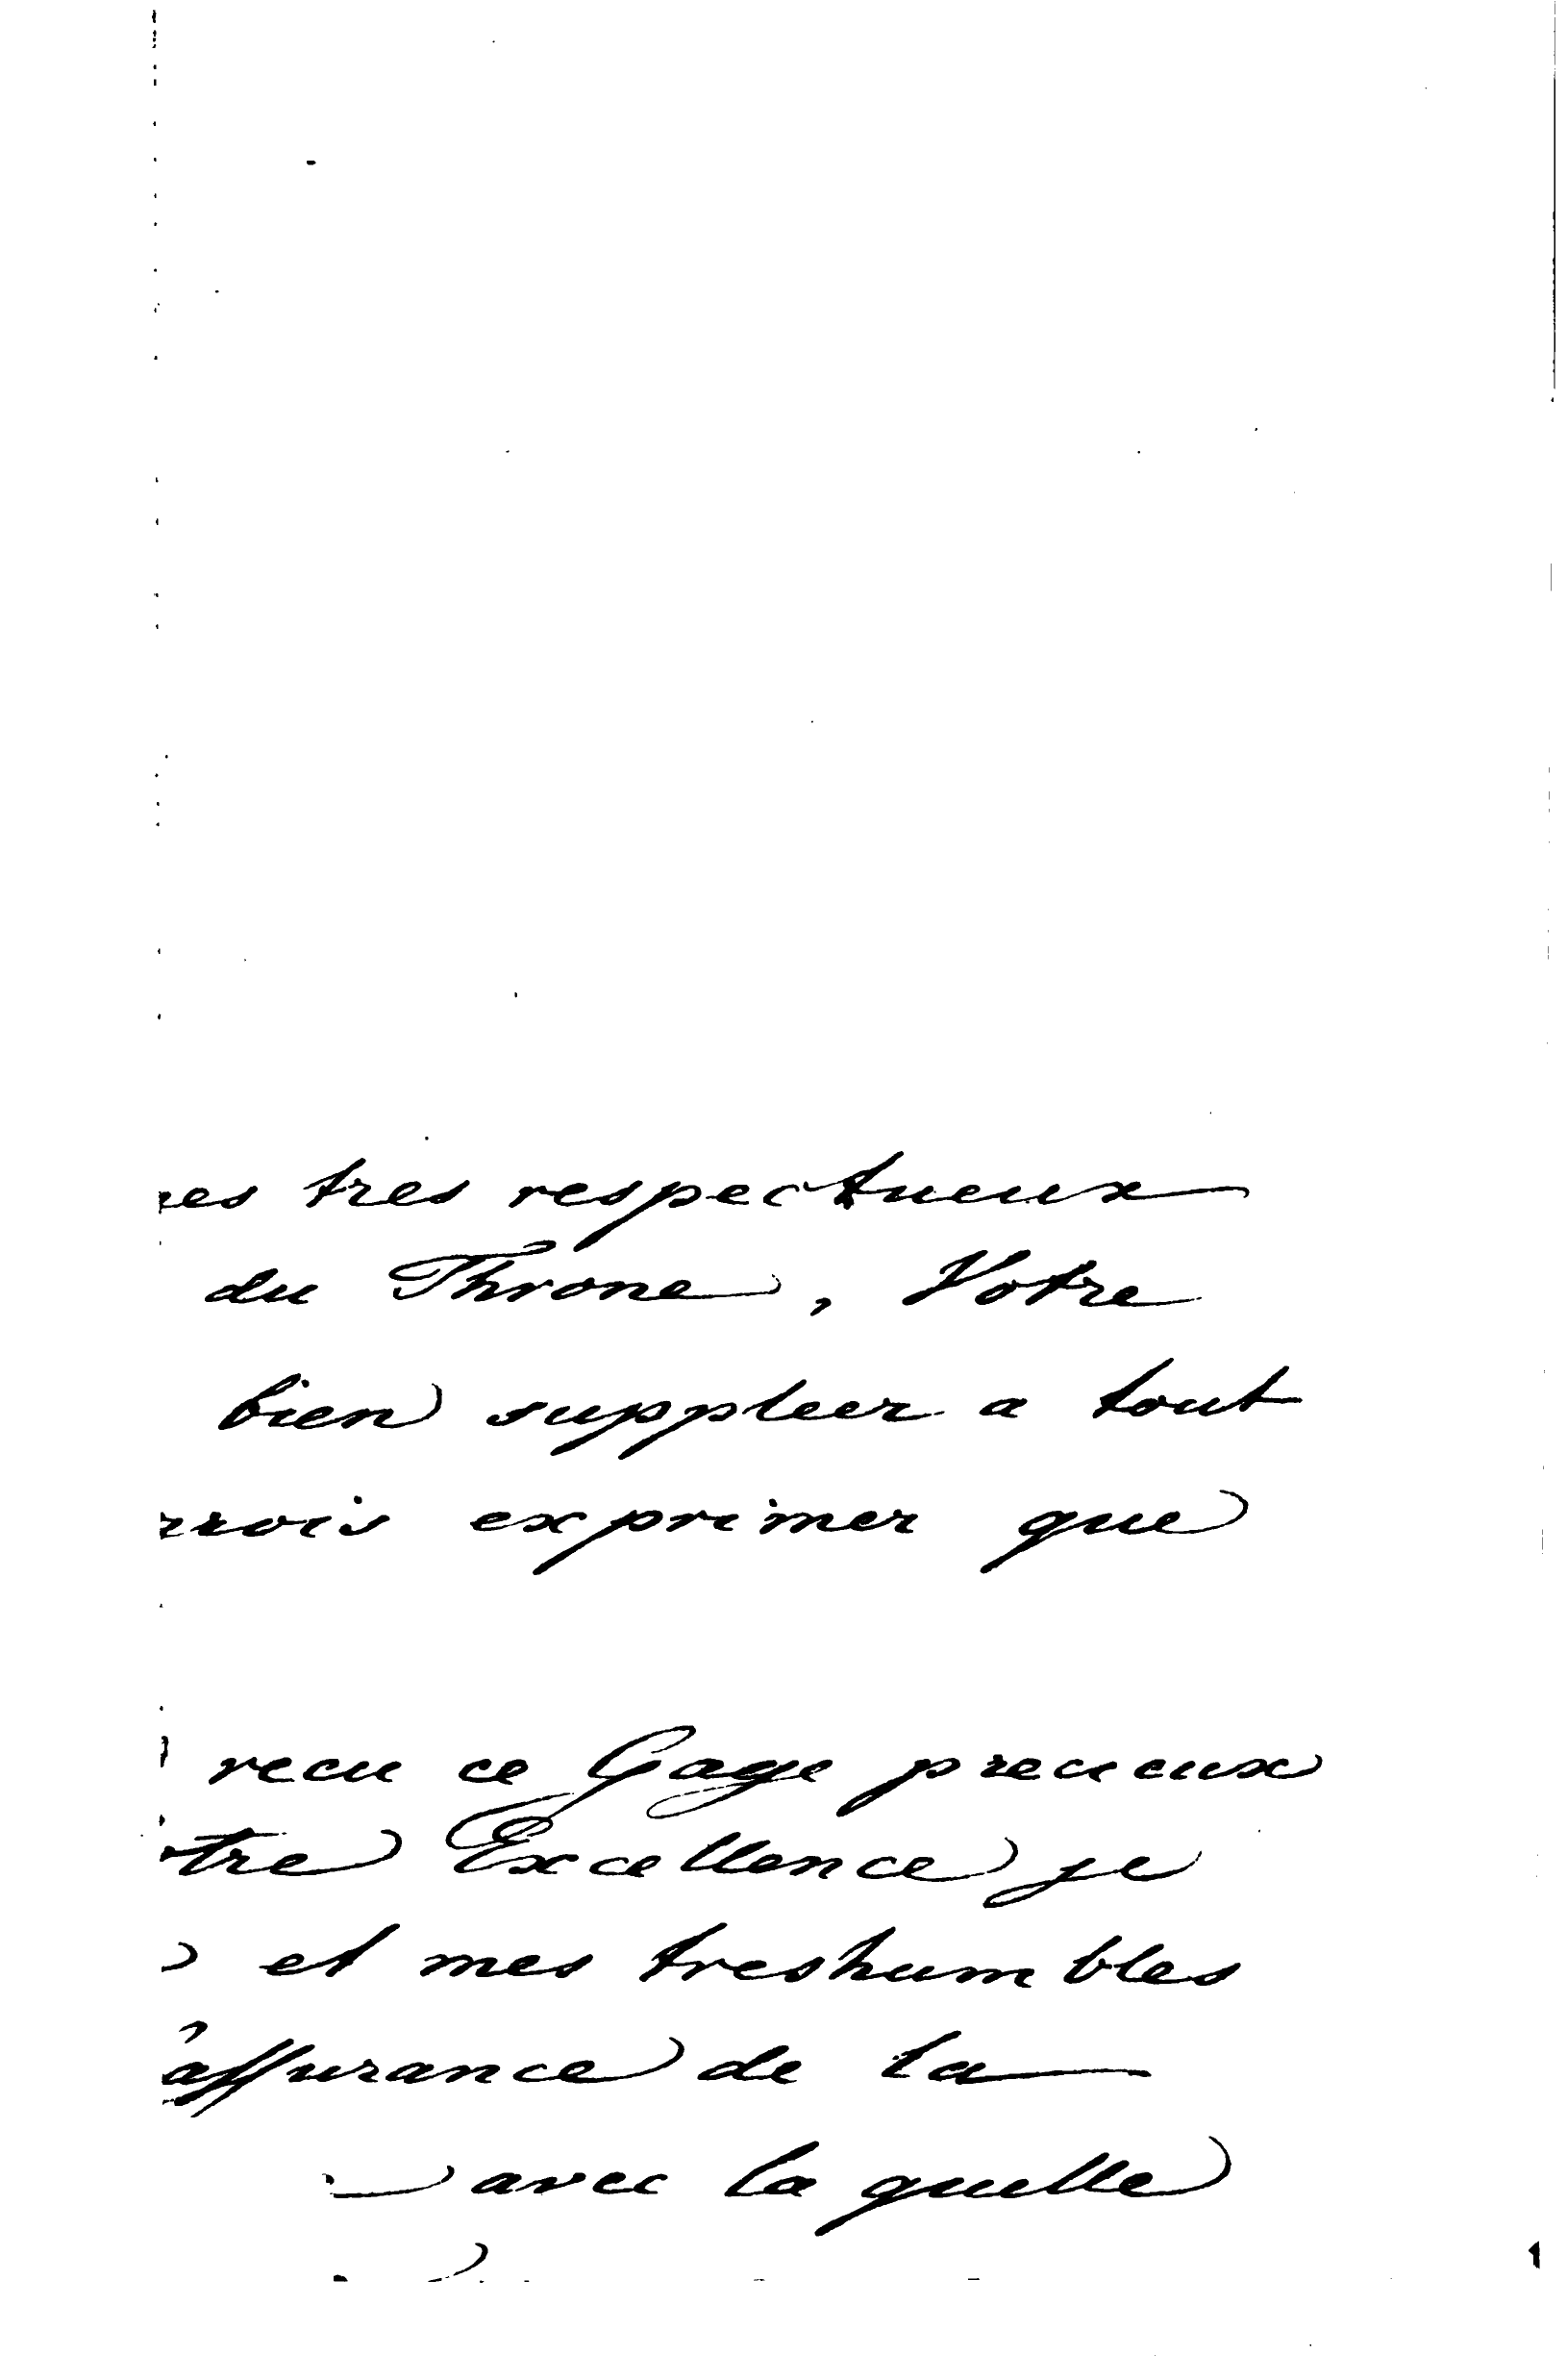 tres respectueux
du Throne, Votre
bien suppleer a tout
exprimer que
recu ce Gage precieux
Excellence je
et mes treshumbles
assurance de la
avec la quelle